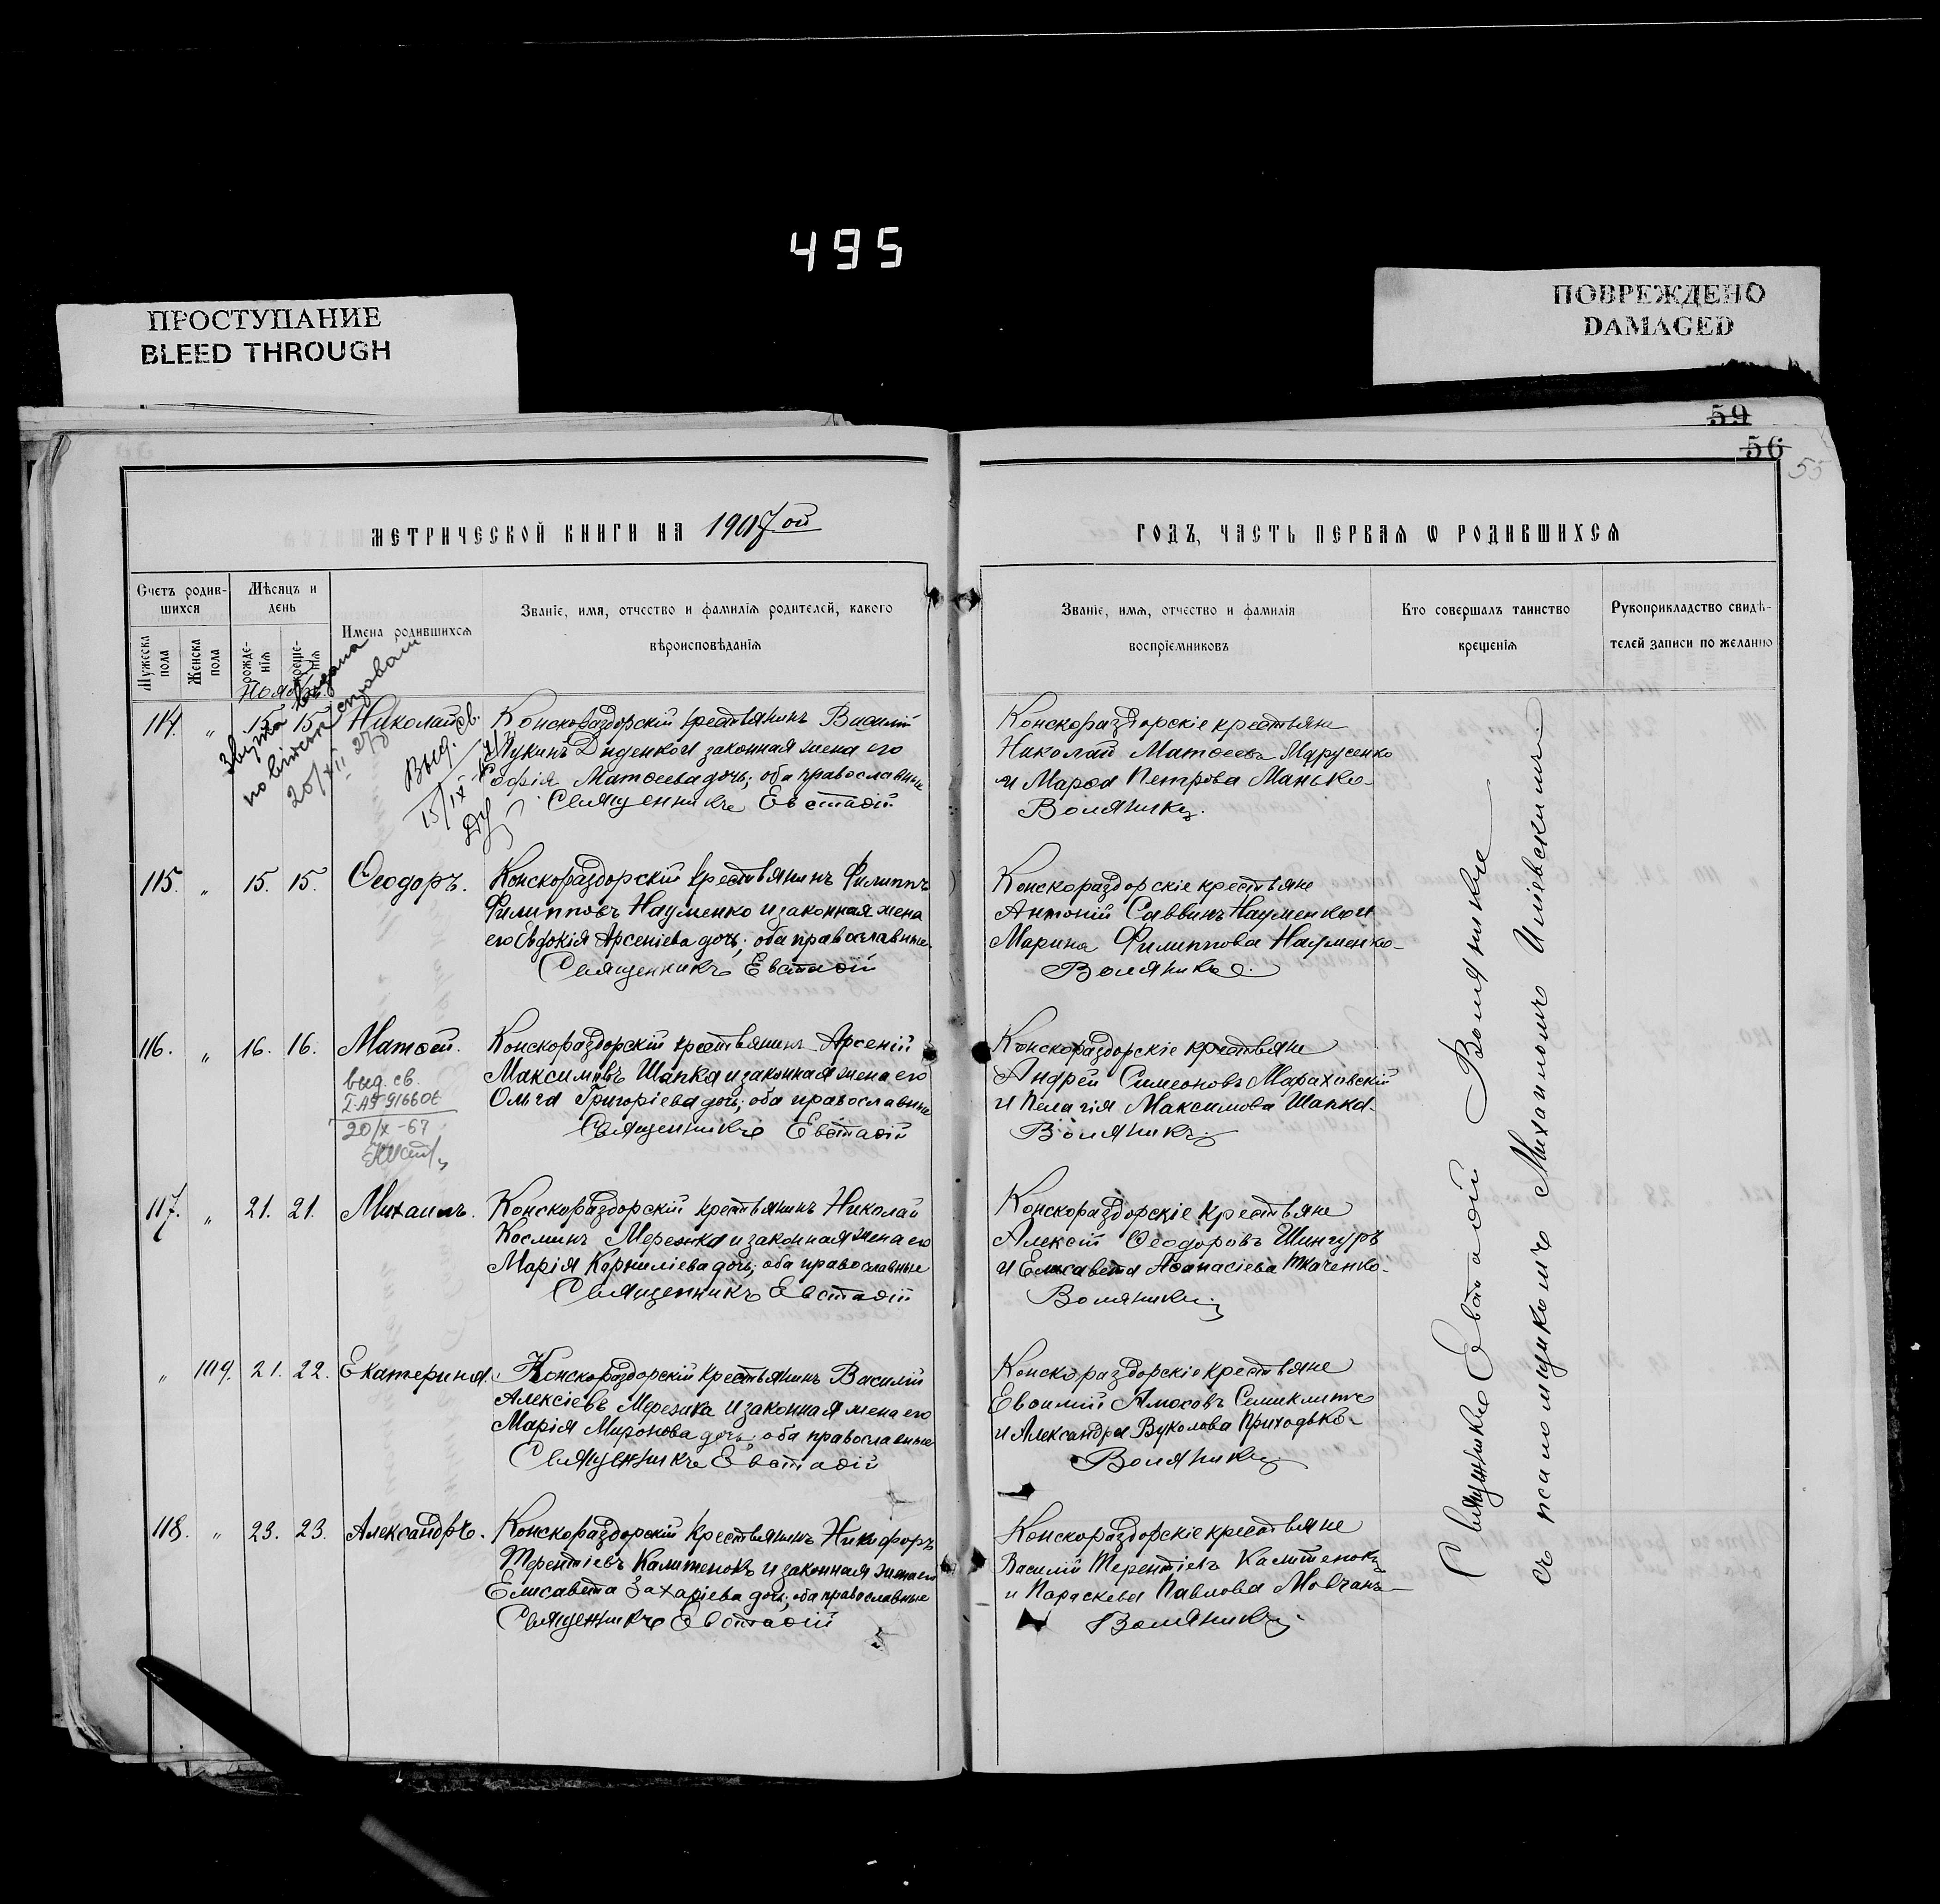 495
ПРОСТУПАНИЕ
BLEED THROUGH
ПОВРЕЖДЕНО
DAMAGED
59
56
55
МЕТРИЧЕСКОЙ КНИГИ НА 1907ой
ГОДЪ, ЧАСТЬ ПЕРВАЯ Ѡ РОДИВШИХСЯ
Счетъ родив-
шихся
Мужеска
пола
Женска
пола
Мѣсяцъ и
день
рожде-
нія
креще-
нія
Имена родившихся
Званіе, имя, отчество и фамилія родителей, какого
вѣроисповѣданія
Званіе, имя, отчество и фамилія
воспріемниковъ
Кто совершалъ таинство
крещенія
Рукоприкладство свидѣ-
телей записи по желанію
Ноябрь
114. " 15. 15. Николай
выд. св.
15/IX
Конскораздорскій крестьянинъ Василій
Лукинъ Диденко и законная жена его
Софія Матѳеева дочь; оба православные
Священникъ Евстаѳій
Конскораздорскіе крестьяне
Николай Матѳеевъ Марусенко
и Марѳа Петрова Манько.
Воляникъ.
115. " 15. 15. Ѳеодоръ.
Конскораздорскій крестьянинъ Филиппъ
Филипповъ Науменко и законная жена
его Евдокія Арсеніева дочь; оба православные.
Священникъ Евстаѳій
Конскораздорскіе крестьяне
Антоній Саввинъ Науменко и
Марина Филиппова Науменко.
Воляникъ.
116. " 16. 16. Матѳей.
выд. св.
I-АЯ 916606
20/X-67
Конскораздорскій крестьянинъ Арсеній
Максимовъ Шапка и законная жена его
Ольга Григоріева дочь; оба православные
Священникъ Евстаѳій
Конскораздорскіе крестьяне
Андрей Симеоновъ Мараховскій
и Пелагія Максимова Шапка.
Воляникъ
117. " 21. 21. Михаилъ.
Конскораздорскій крестьянинъ Николай
Косминъ Мережка и законная жена его
Марія Корниліева дочь; оба православные
Священникъ Евстаѳій
Конскораздорскіе крестьяне
Алексій Ѳеодоровъ Шингуръ
и Елисавета Аѳанасіева Ткаченко.
Воляникъ
" 109. 21. 22. Екатерина.
Конскораздорскій крестьянинъ Василій
Алексіевъ Мережка и законная жена его
Марія Миронова дочь; оба православные
Священникъ Евстаѳій
Конскораздорскіе крестьяне
Евѳимій Амосовъ Семиклитъ
и Александра Вуколова Приходько.
Воляникъ
118. " 23. 23. Александръ.
Конскораздорскій крестьянинъ Никифоръ
Терентіевъ Калитенокъ и законная жена его
Елисавета Захаріева дочь; оба православные
Священникъ Евстаѳій
5
Конскораздорскіе крестьяне
Василій Терентіевъ Калитенокъ
и Параскева Павлова Мовчанъ
Воляникъ.
Священникъ Евстаѳій Воляникъ
съ псаломщикомъ Михаиломъ Иліевскимъ.